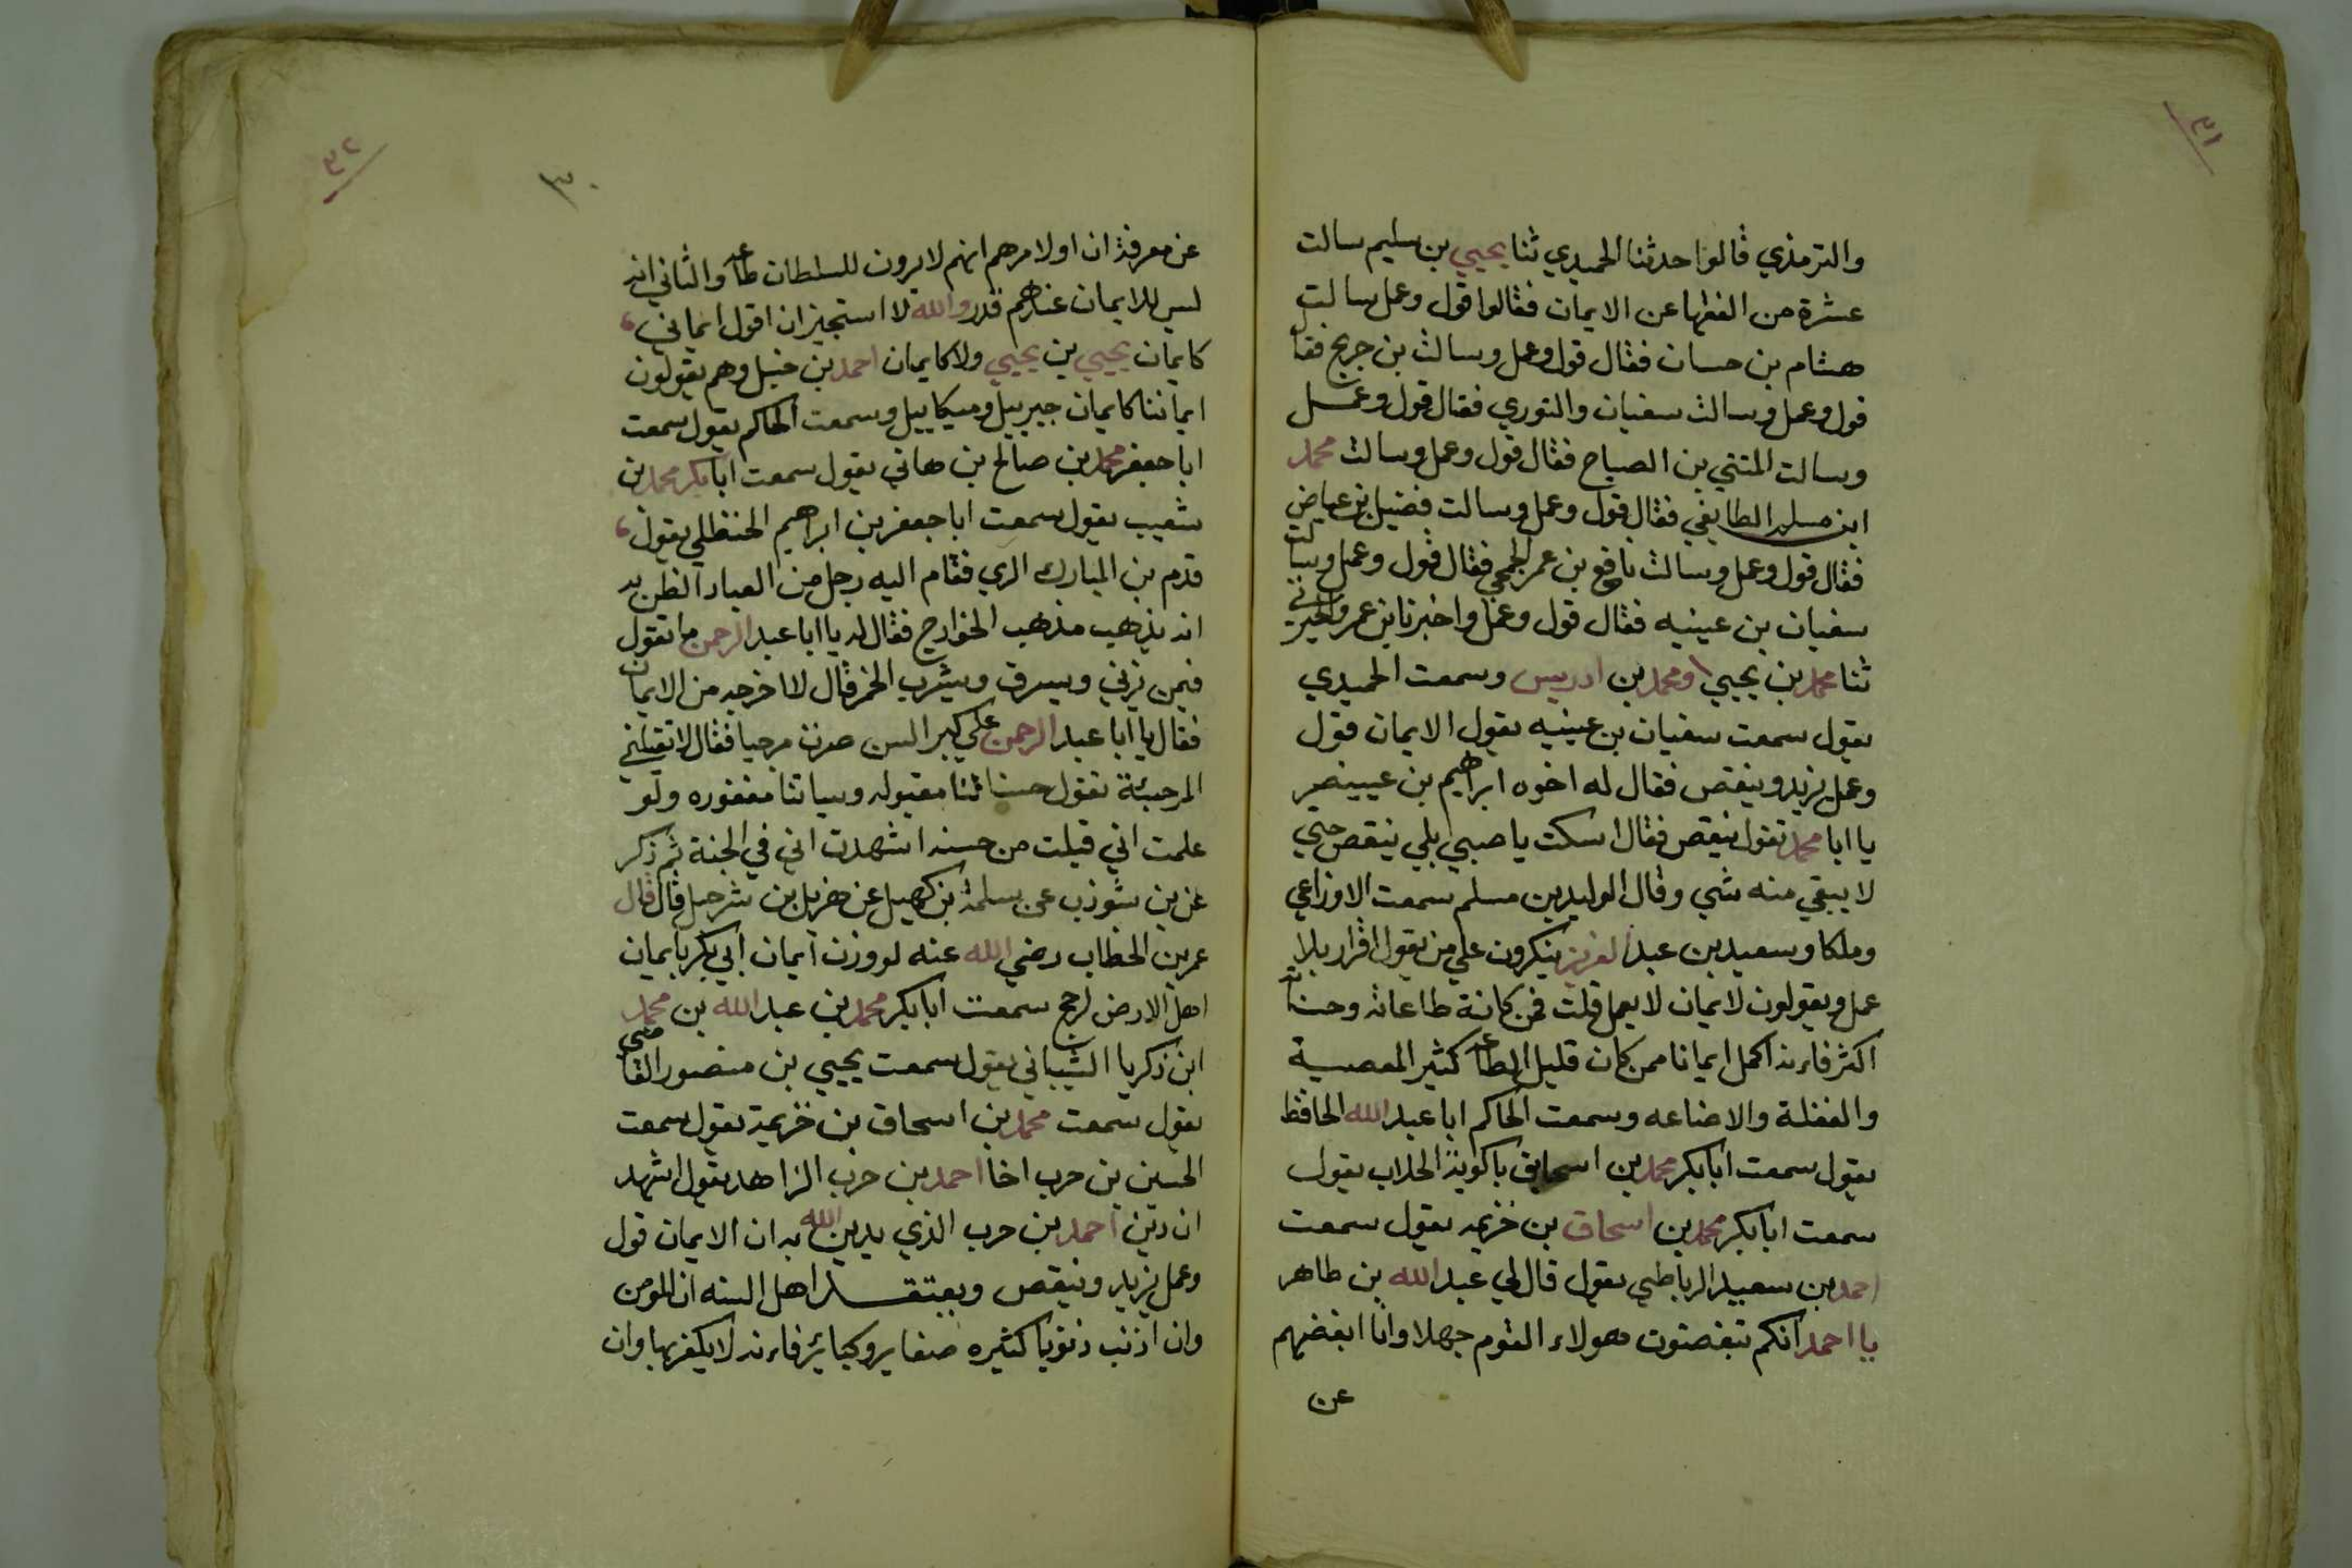 ٣١
والترمذي قالوا حدثنا الحميدي ثنا يحيي بن سليم سالت
عشرة من الفقها عن الايمان فقالوا قول وعمل سالت
هشام بن حسان فقال قول وعمل وسالت بن جريج فقال
قول وعمل وسالت سفيان والثوري فقال قول وعمل
وسالت المثني بن الصباح فقال قول وعمل وسالت محمد
ابن مسلم الطايفي فقال قول وعمل وسالت فضيل بن عياض
فقال قول وعمل وسالت نافع بن عمر الجمحي فقال قول وعمل وسالت
سفيان بن عينيه فقال قول وعمل واخبرنا بن عمرو الحيري
ثنا محمد بن يحيي ومحمد بن ادريس وسمعت الحميدي
يقول سمعت سفيان بن عينيه يقول الايمان قول
وعمل يزيد وينقص فقال له اخوه ابراهيم بن عيينه
يا ابا محمد تقول ينقص فقال اسكت يا صبي بلي ينقص حتي
لا يبقي منه شي وقال الوليد بن مسلم سمعت الاوزاعي
وملكا وسعيد بن عبد العزيز ينكرون علي من يقول اقرار بلا
عمل ويقولون لا ايمان لا بعمل قلت فمن كانة طاعاته وحسناته
اكثر فاءنه اكمل ايمانا ممن كان قليل الطاعه كثير المعصية
والغفلة والاضاعه وسمعت الحاكم ابا عبد الله الحافظ
يقول سمعت ابا بكر محمد بن اسحاق باكوية الحلاب يقول
سمعت ابا بكر محمد بن اسحاق بن خزيمه يقول سمعت
احمد بن سعيد الرباطي يقول قال لي عبد الله بن طاهر
يا احمد انكم تبغضون هولاء القوم جهلا وانا ابغضهم
عن
٣٢
٣٠
عن معرفة ان اولا مرهم انهم لا يرون للسلطان طاعه والثاني انه
ليس للايمان عندهم قدر والله لا استجيز ان اقول ايماني
كايمان يحيي بن يحيي ولا كايمان احمد بن حنبل وهم يقولون
ايماننا كايمان جيرييل وميكاييل وسمعت الحاكم يقول سمعت
ابا جعفر محمد بن صالح بن هاني يقول سمعت ابا بكر محمد بن
شعيب يقول سمعت ابا جعفر بن ابراهيم الحنظلي يقول
قدم بن المبارك الري فقام اليه رجل من العباد الظن به
انه يذهب مذهب الخوارج فقال له يا ابا عبد الرحمن ما تقول
فيمن يزني ويسرق ويشرب الخمر قال لا اخرجه من الايمان
فقال يا ابا عبد الرحمن علي كبر السن صرت مرجيا فقال لا تقبلني
المرجئة تقول حسناتنا مقبوله وسياتنا مغفوره ولو
علمت اني قبلت من حسنه اشهدت اني في الجنة ثم ذكر
عن بن شوذب عن سلمة بن كهيل عن هزيل بن شرحبيل قال قال
عمر بن الخطاب رضي الله عنه لو وزن ايمان ابي بكر بايمان
اهل الارض لرجح سمعت ابا بكر محمد بن عبد الله بن محمد
ابن زكريا الشيباني يقول سمعت يحيي بن منصور القاضي
يقول سمعت محمد بن اسحاق بن خزيمة يقول سمعت
الحسين بن حرب اخا احمد بن حرب الزاهد يقول اشهد
ان دين احمد بن حرب الذي يدين الله به ان الايمان قول
وعمل يزيد وينقص ويعتقد اهل السنه ان المومن
وان اذنب ذنوبا كثيره صغاير وكبائر فاءنه لا يكفر بها وان